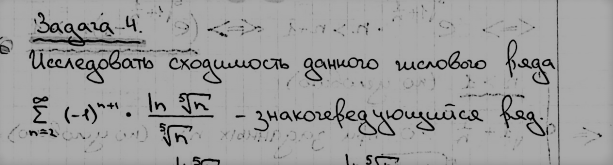 Задача 4.
Исследовать сходимость данного числового ряда
∞ ∑ n=2 (-1)^{n+1} · ln ⁵√n / ⁵√n - знакочередующийся ряд.